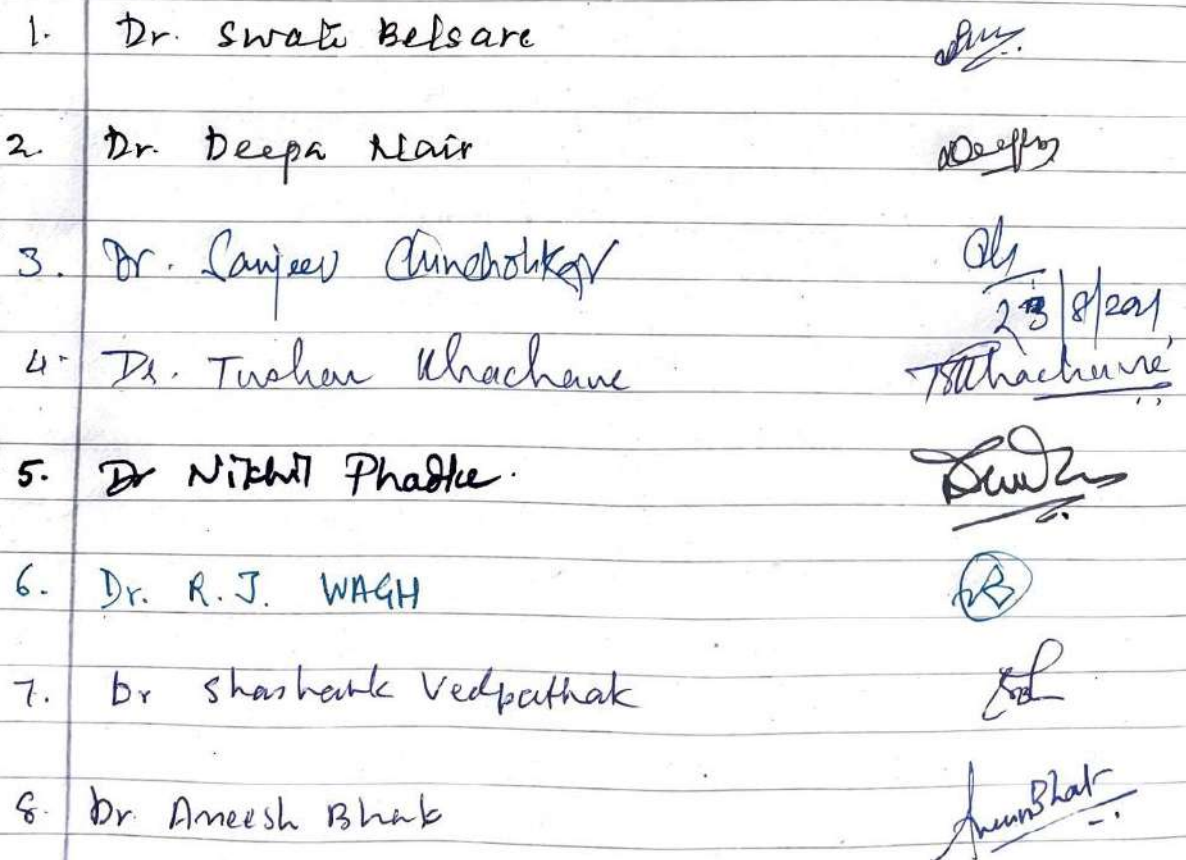 1. Dr. Swati Belsare
2. Dr. Deepa Nair
3. Dr. Sanjeev Chincholikar
23/8/2021
4. Dr. Tushar Khachane TSKhachane
5. Dr Nikhil Phadke.
6. Dr. R. J. WAGH
7. Dr Shashank Vedpathak
8. Dr. Aneesh Bhat